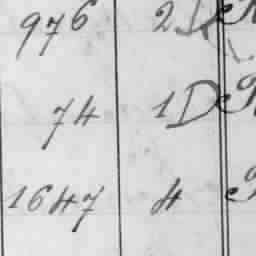 976 2
74 1D
1647 4